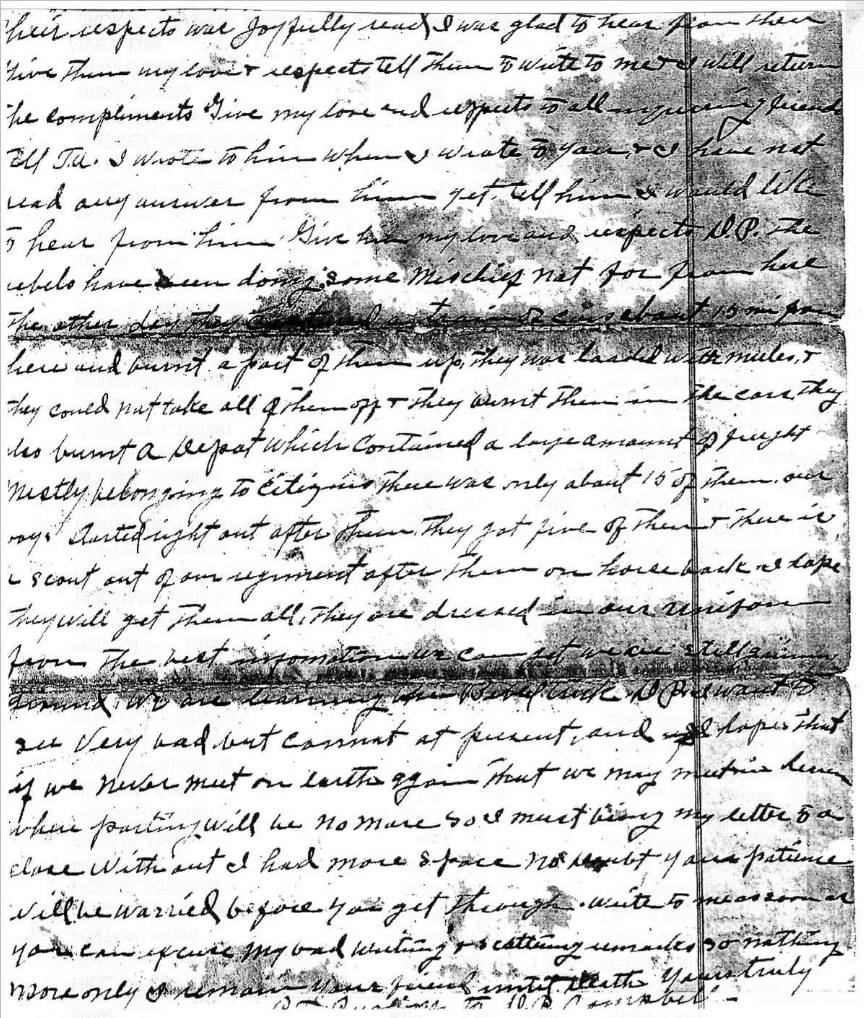 their respects was joyfully read, I was glad to hear from them
Give them my love & respects tell them to write to me & I will return
the compliments Give my love and respects to all inquiring friends
tell I wrote to him when I wrote to you, & I have not
read any answer from him yet. tell him I would like
to hear from him. Give him my love and respects D.P. the
rebels have been doing some Mischief not far from here
the other day they train of cars about 15 mi from
here and burnt a part of them up, they was loaded with mules, &
they could not take all of them off & they burnt them in the cars, they
also burnt a Depot which Contained a large amount of freight
Mostly belonging to Citizens there was only about 15 of them. our
boys started right out after them. They got five of them & there is
a scout out of our regiment after them on horse back I hope
they will get them all, they are dressed in our uniform
from the best information we can get we are still gaining
ground, we are learning D.P. I want to
see Very bad but cannot at present, and I hope that
if we never meet on earth again that we may meet in heven
where parting will be no more so I must bring my letter to a
close With out I had more space no doubt your patience
will be warried before you get through. write to me as soon as
you can excuse my bad writing & scattring remarks so nothing
more only I remain your friend until Death Yours truly
to D.P. Campbel